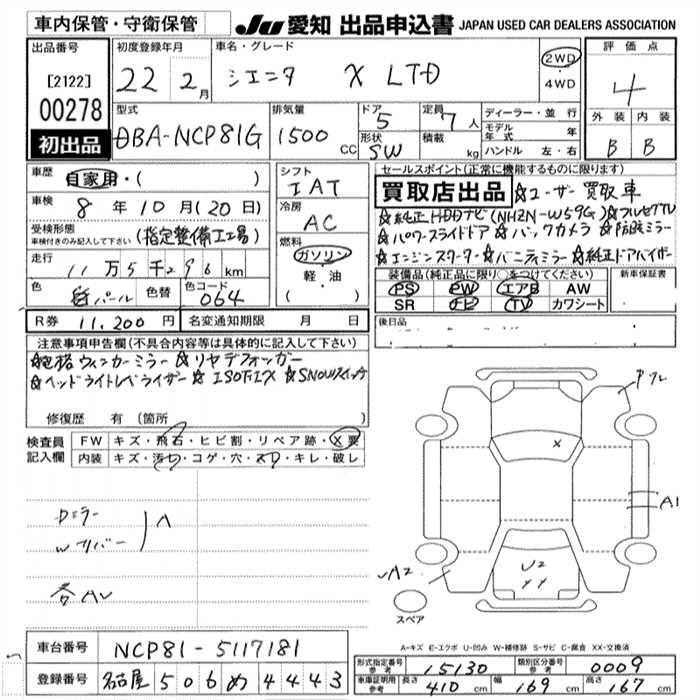 車内保管・守衛保管
JU 愛知 出品申込書 JAPAN USED CAR DEALERS ASSOCIATION
出品番号 [2122] 00278 初出品
初度登録年月 22年 2月
車名・グレード シエンタ X LTD
2WD・4WD
評価点 4
外装 B 内装 B
型式 DBA-NCP81G
排気量 1500 CC
ドア 5
形状 SW
定員 7人
積載 kg
ディーラー・並行
モデル年式 年
ハンドル 左・右
車歴 自家用・( )
車検 8年 10月(20日)
受検形態 車検付きのみ記入して下さい (指定整備工工場)
走行 11万5千296km
色 パール 色替 色コード 064
R券 11,200円 名変通知期限 月 日
シフト IAT
冷房 AC
燃料 ガソリン 軽・油 ( )
セールスポイント(正常に機能するものに限ります)
買取店出品 ☆ユーザー買取車
☆純正HDDナビ(NH2N-W59G)☆フルセグTV
☆パワースライドドア ☆バックカメラ ☆防眩ミラー
☆エンジンスターター ☆バニティミラー ☆純正ドアバイザー
装備品(純正品に限り○をつけてください)
PS PW エアB AW
SR ナビ TV カワシート
新車保証書
後日品
注意事項申告欄(不具合内容等は具体的に記入して下さい)
ウィンカーミラー ☆リヤデフォッガー
☆ヘッドライトレベライザー ☆ISOFIX ☆SNOWスイッチ
修復歴 有 (箇所 )
検査員記入欄
FW キズ・飛石・ヒビ割・リペア跡・X要
内装 キズ・汚れ・コゲ・穴・スレ・キレ・破レ
Dミラー
Wカバー A
各AU
X
A1
U2
A2
スペア
A-キズ E-エクボ U-凹み W-補修跡 S-サビ C-腐食 XX-交換済
車台番号 NCP81-5117181
登録番号 名古屋 506 め 4443
形式指定番号 参考 15130 類別区分番号 参考 0009
車車証明用 参考 長さ 410cm 幅 169cm 高さ 167cm